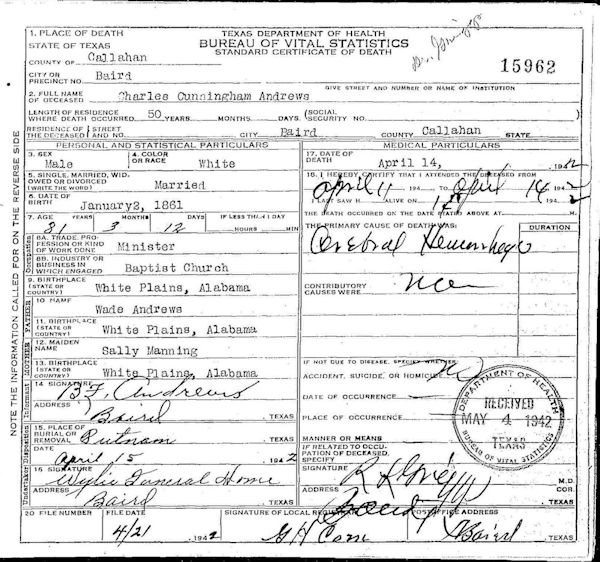 NOTE THE INFORMATION CALLED FOR ON THE REVERSE SIDE
TEXAS DEPARTMENT OF HEALTH
BUREAU OF VITAL STATISTICS
STANDARD CERTIFICATE OF DEATH
15962
1. PLACE OF DEATH
STATE OF TEXAS
COUNTY OF Callahan
CITY OR PRECINCT NO. Baird
GIVE STREET AND NUMBER OR NAME OF INSTITUTION
2. FULL NAME OF DECEASED Charles Cunningham Andrews
LENGTH OF RESIDENCE WHERE DEATH OCCURRED 50 YEARS MONTHS DAYS (SOCIAL SECURITY NO.
RESIDENCE OF THE DECEASED STREET AND NO. CITY Baird COUNTY Callahan STATE
PERSONAL AND STATISTICAL PARTICULARS
3. SEX Male
4. COLOR OR RACE White
5. SINGLE, MARRIED, WIDOWED OR DIVORCED (WRITE THE WORD) Married
6. DATE OF BIRTH January2, 1861
7. AGE YEARS MONTHS DAYS IF LESS THAN 1 DAY
81 3 12 HOURS MIN
8A. TRADE, PROFESSION OR KIND OF WORK DONE Minister
8B. INDUSTRY OR BUSINESS IN WHICH ENGAGED Baptist Church
9. BIRTHPLACE (STATE OR COUNTRY) White Plains, Alabama
10 NAME Wade Andrews
11. BIRTHPLACE (STATE OR COUNTRY) White Plains, Alabama
12. MAIDEN NAME Sally Manning
13. BIRTHPLACE (STATE OR COUNTRY) White Plains, Alabama
14 SIGNATURE B.F. Andrews
ADDRESS Baird TEXAS
15. PLACE OF BURIAL OR REMOVAL Putnam TEXAS
April 15 1942
16 SIGNATURE Wylie Funeral Home
ADDRESS Baird TEXAS
Occupation
FATHER
MOTHER
Informant
Disposition
Undertaker
MEDICAL PARTICULARS
17. DATE OF DEATH April 14, 1942
18. I HEREBY CERTIFY THAT I ATTENDED THE DECEASED FROM
April 11 194 TO April 14 1942
I LAST SAW H ALIVE ON 194
THE DEATH OCCURRED ON THE DATE STATED ABOVE AT M.
THE PRIMARY CAUSE OF DEATH WAS: DURATION
Cerebral Hemorrhage
CONTRIBUTORY CAUSES WERE
IF NOT DUE TO DISEASE, SPECIFY WHETHER
ACCIDENT, SUICIDE, OR HOMICIDE
DATE OF OCCURRENCE
PLACE OF OCCURRENCE
MANNER OR MEANS
IF RELATED TO OCCUPATION OF DECEASED, SPECIFY
SIGNATURE M.D.
COR.
ADDRESS Baird TEXAS
DEPARTMENT OF HEALTH
RECEIVED
MAY 4 1942
TEXAS
BUREAU OF VITAL STATISTICS
20 FILE NUMBER FILE DATE SIGNATURE OF LOCAL REGISTRAR POSTOFFICE ADDRESS
4/21 1942 Baird TEXAS